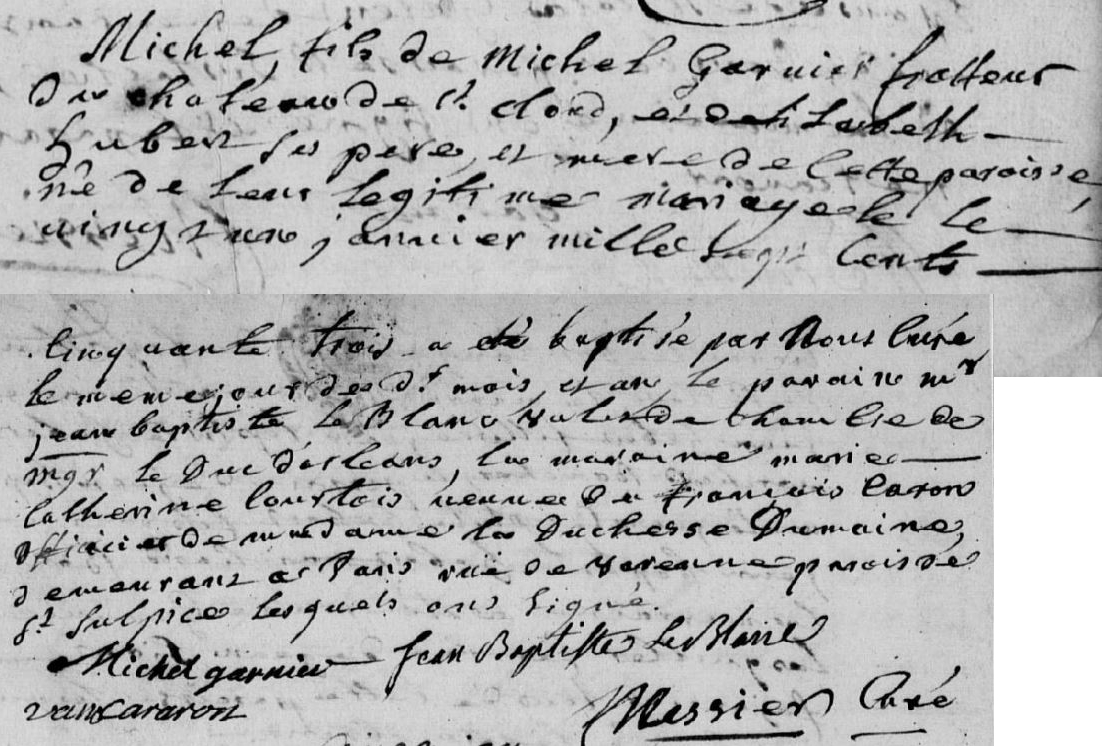 Michel, fils de Michel Garnier frotteur
du chateau de St. Cloud, et d'elisabeth
hubert ses pere, et mere de cette paroisse,
né de leur legitime mariage le
vingt un janvier mille sept cents
cinquante trois a eté baptisé par Nous Curé
le meme jour des d.t mois, et an, le parain mr
jean baptiste le Blanc valet de chambre de
mgr le Duc d'orleans, la maraine marie
catherine Courtois veuve de françois Caron
officier de madame la Duchesse Dumaine,
demeurant a Paris rüe de varenne paroisse
St Sulpice lesquels ont signé.
Michel garnier Jean Baptiste Le Blanc
Messier Curé